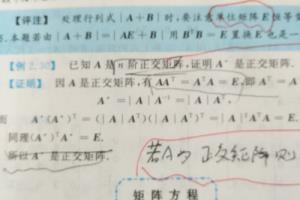 【评注】 处理行列式|A+B|时,要注意单位矩阵E恒等变
本题若由|A+B|=|AE+B|用BᵀB=E置换E也是一
【例2.30】 已知A是n阶正交矩阵,证明A*是正交矩阵.
【证明】 因A是正交矩阵,有AAᵀ=AᵀA=E,即Aᵀ=A
A*=|A|A⁻¹=|A|Aᵀ,
而 A*(A*)ᵀ=(|A|Aᵀ)(|A|Aᵀ)ᵀ=|A|²AᵀA=E.
同理(A*)ᵀA*=E.
所以A*是正交矩阵.
若A为正交矩阵 则|A|
矩阵方程